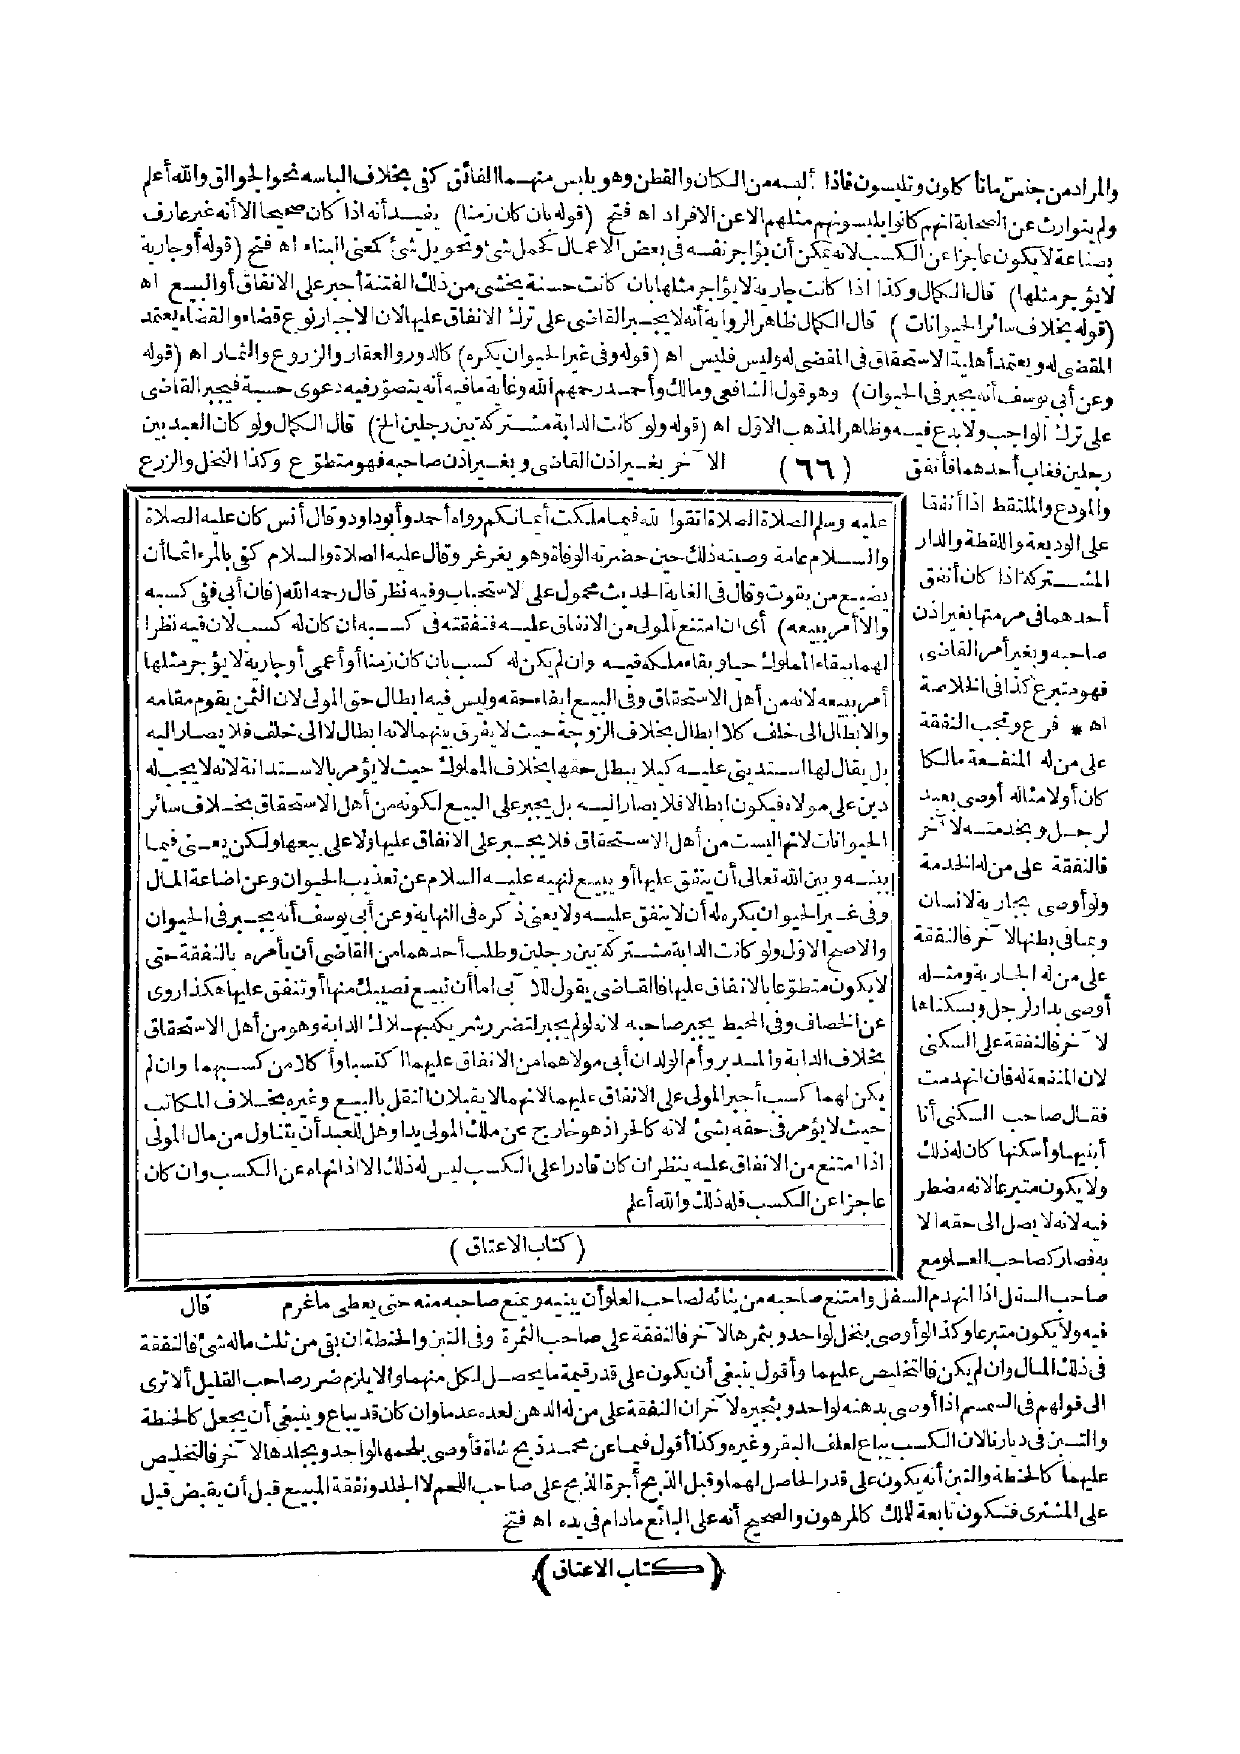 والمراد من جنس ما تأكلون وتلبسون فاذا ألبسه من الكتان والقطن وهو يلبس منهما الفائق كفى بخلاف الباسه نحو الجوالق والله أعلم
ولم يتوارث عن الصحابة انهم كانوا يلبسونهم مثلهم الا عن الافراد اه فتح (قوله بان كان زمنا) يفيد أنه اذا كان صحيحا الا أنه غير عارف
بصناعة لا يكون عاجزا عن الكسب لانه يمكن أن يؤاجر نفسه فى بعض الاعمال كحمل شئ وتحويل شئ كمعنى البناء اه فتح (قوله أو جارية
لا يؤجر مثلها) قال الكمال وكذا اذا كانت جارية لا يؤاجر مثلها بان كانت حسنة يخشى من ذلك الفتنة أجبر على الانفاق أو البيع اه
(قوله بخلاف سائر الحيوانات) قال الكمال ظاهر الرواية أنه لا يجبر القاضى على ترك الانفاق عليها لان الاجبار نوع قضاء والقضاء يعتمد
المقضى له ويعتمد أهلية الاستحقاق فى المقضى له وليس فليس اه (قوله وفى غير الحيوان يكره) كالدور والعقار والزروع والثمار اه (قوله
وعن أبى يوسف أنه يجبر فى الحيوان) وهو قول الشافعى ومالك وأحمد رحمهم الله وغاية ما فيه أنه يتصور فيه دعوى حسبة فيجبر القاضى
على ترك الواجب ولا بدع فيه وظاهر المذهب الاول اه (قوله ولو كانت الدابة مشتركة بين رجلين الخ) قال الكمال ولو كان العبد بين
رجلين فغاب أحدهما فأنفق (٦٦) الآخر بغير اذن القاضى وبغير اذن صاحبه فهو متطوع وكذا النخل والزرع
والمودع والملتقط اذا أنفقا
على الوديعة واللقطة والدار
المشتركة اذا كان أنفق
أحدهما فى مرمتها بغير اذن
صاحبه وبغير أمر القاضى
فهو متبرع كذا فى الخلاصة
اه * فرع وتجب النفقة
على من له المنفعة مالكا
كان أو لا مثاله أوصى بعبد
لرجل وبخدمته لآخر
فالنفقة على من له الخدمة
ولو أوصى بجارية لانسان
وبما فى بطنها لآخر فالنفقة
على من له الجارية ومثله
أوصى بدار لرجل وبسكناها
لآخر فالنفقة على السكنى
لان المنفعة له فان انهدمت
فقال صاحب السكنى أنا
أبنيها وأسكنها كان له ذلك
ولا يكون متبرعا لانه مضطر
فيه لانه لا يصل الى حقه الا
به فصار كصاحب العلو مع
عليه وسلم الصلاة الصلاة اتقوا الله فيما ملكت أيمانكم رواه أحمد وأبو داود وقال أنس كان عليه الصلاة
والسلام عامة وصيته ذلك حين حضرته الوفاة وهو يغرغر وقال عليه الصلاة والسلام كفى بالمرء اثما أن
يضيع من يقوت وقال فى الغاية الحديث محمول على الاستحباب وفيه نظر قال رحمه الله (فان أبى ففى كسبه
والا أمر ببيعه) أى ان امتنع المولى من الانفاق عليه فنفقته فى كسبه ان كان له كسب لان فيه نظرا
لهما ببقاء المملوك حيا وبقاء ملكه فيه وان لم يكن له كسب بان كان زمنا أو أعمى أو جارية لا يؤجر مثلها
أمر ببيعه لانه من أهل الاستحقاق وفى البيع ايفاء حقه وليس فيه ابطال حق المولى لان الثمن يقوم مقامه
والابطال الى خلف كلا ابطال بخلاف الزوجة حيث لا يفرق بينهما لانه ابطال لا الى خلف فلا يصار اليه
بل يقال لها استدينى عليه كيلا يبطل حقها بخلاف المملوك حيث لا يؤمر بالاستدانة لانه لا يجب له
دين على مولاه فيكون ابطالا فلا يصار اليه بل يجبر على البيع لكونه من أهل الاستحقاق بخلاف سائر
الحيوانات لانها ليست من أهل الاستحقاق فلا يجبر على الانفاق عليها ولا على بيعها ولكن يعنى فيما
بينه وبين الله تعالى أن ينفق عليها أو يبيع لنهيه عليه السلام عن تعذيب الحيوان وعن اضاعة المال
وفى غير الحيوان يكره له أن لا ينفق عليه ولا يعنى ذكره فى النهاية وعن أبى يوسف أنه يجبر فى الحيوان
والاصح الاول ولو كانت الدابة مشتركة بين رجلين وطلب أحدهما من القاضى أن يأمره بالنفقة حتى
لا يكون متطوعا بالانفاق عليها فالقاضى يقول للآبى اما أن تبيع نصيبك منها أو تنفق عليها هكذا روى
عن الخصاف وفى المحيط يجبر صاحبه لانه لو لم يجبر لتضرر شريكه بهلاك الدابة وهو من أهل الاستحقاق
بخلاف الدابة والمدبر وأم الولد ان أبى مولاهما من الانفاق عليهما اكتسبا وأكلا من كسبهما وان لم
يكن لهما كسب أجبر المولى على الانفاق عليهما لانهما لا يقبلان النقل بالبيع وغيره بخلاف المكاتب
حيث لا يؤمر فى حقه بشئ لانه كالحر اذ هو خارج عن ملك المولى يدا وهل للعبد أن يتناول من مال المولى
اذا امتنع من الانفاق عليه ينظر ان كان قادرا على الكسب ليس له ذلك الا اذا نهاه عن الكسب وان كان
عاجزا عن الكسب فله ذلك والله أعلم
(كتاب الاعتاق)
قال
صاحب السفل اذا انهدم السفل وامتنع صاحبه من بنائه لصاحب العلو أن يبنيه ويمنع صاحبه منه حتى يعطى ما غرم
فيه ولا يكون متبرعا وكذا لو أوصى بنخل لواحد وبثمرها لآخر فالنفقة على صاحب الثمرة وفى التبن والحنطة ان بقى من ثلث ماله شئ فالنفقة
فى ذلك المال وان لم يكن فالتخليص عليهما وأقول ينبغى أن يكون على قدر قيمة ما يحصل لكل منهما والا يلزم ضرر صاحب القليل ألا ترى
الى قولهم فى السمسم اذا أوصى بدهنه لواحد وبثجيره لآخر ان النفقة على من له الدهن لعده عدما وان كان قد يباع وينبغى أن يجعل كالحنطة
والتبن فى ديارنا لان الكسب يباع لعلف البقر وغيره وكذا أقول فيما عن محمد ذبح شاة فأوصى بلحمها لواحد وبجلدها لآخر فالتخليص
عليهما كالحنطة والتبن أنه يكون على قدر الحاصل لهما وقبل الذبح أجرة الذبح على صاحب اللحم لا الجلد ونفقة المبيع قبل أن يقبض قيل
على المشترى فتكون تابعة للملك كالمرهون والصحيح أنه على البائع ما دام فى يده اه فتح
(كتاب الاعتاق)